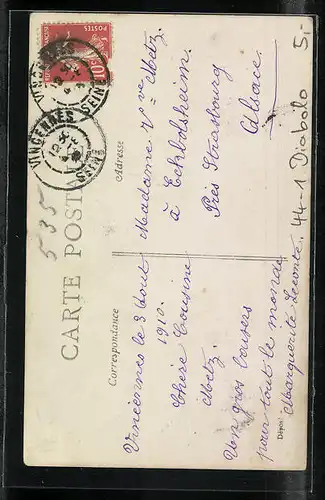 CARTE POSTALE
Correspondance
Adresse
Vincennes le 3 Août
1910.
Chère Cousine
Metz.
Un gros baisers
pour tout le monde
Marguerite Lecomte.
Madame Vve Metz.
à Eckbolsheim
Près Strasbourg
Alsace
535
44-1 Diabolo 5,-
VINCENNES
SEINE
VINCENNES
SEINE
10